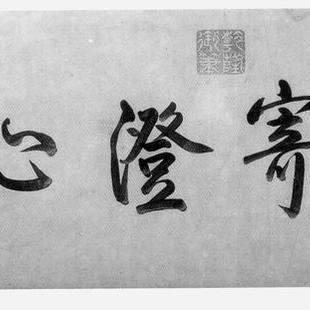 寄澄心
乾隆御筆